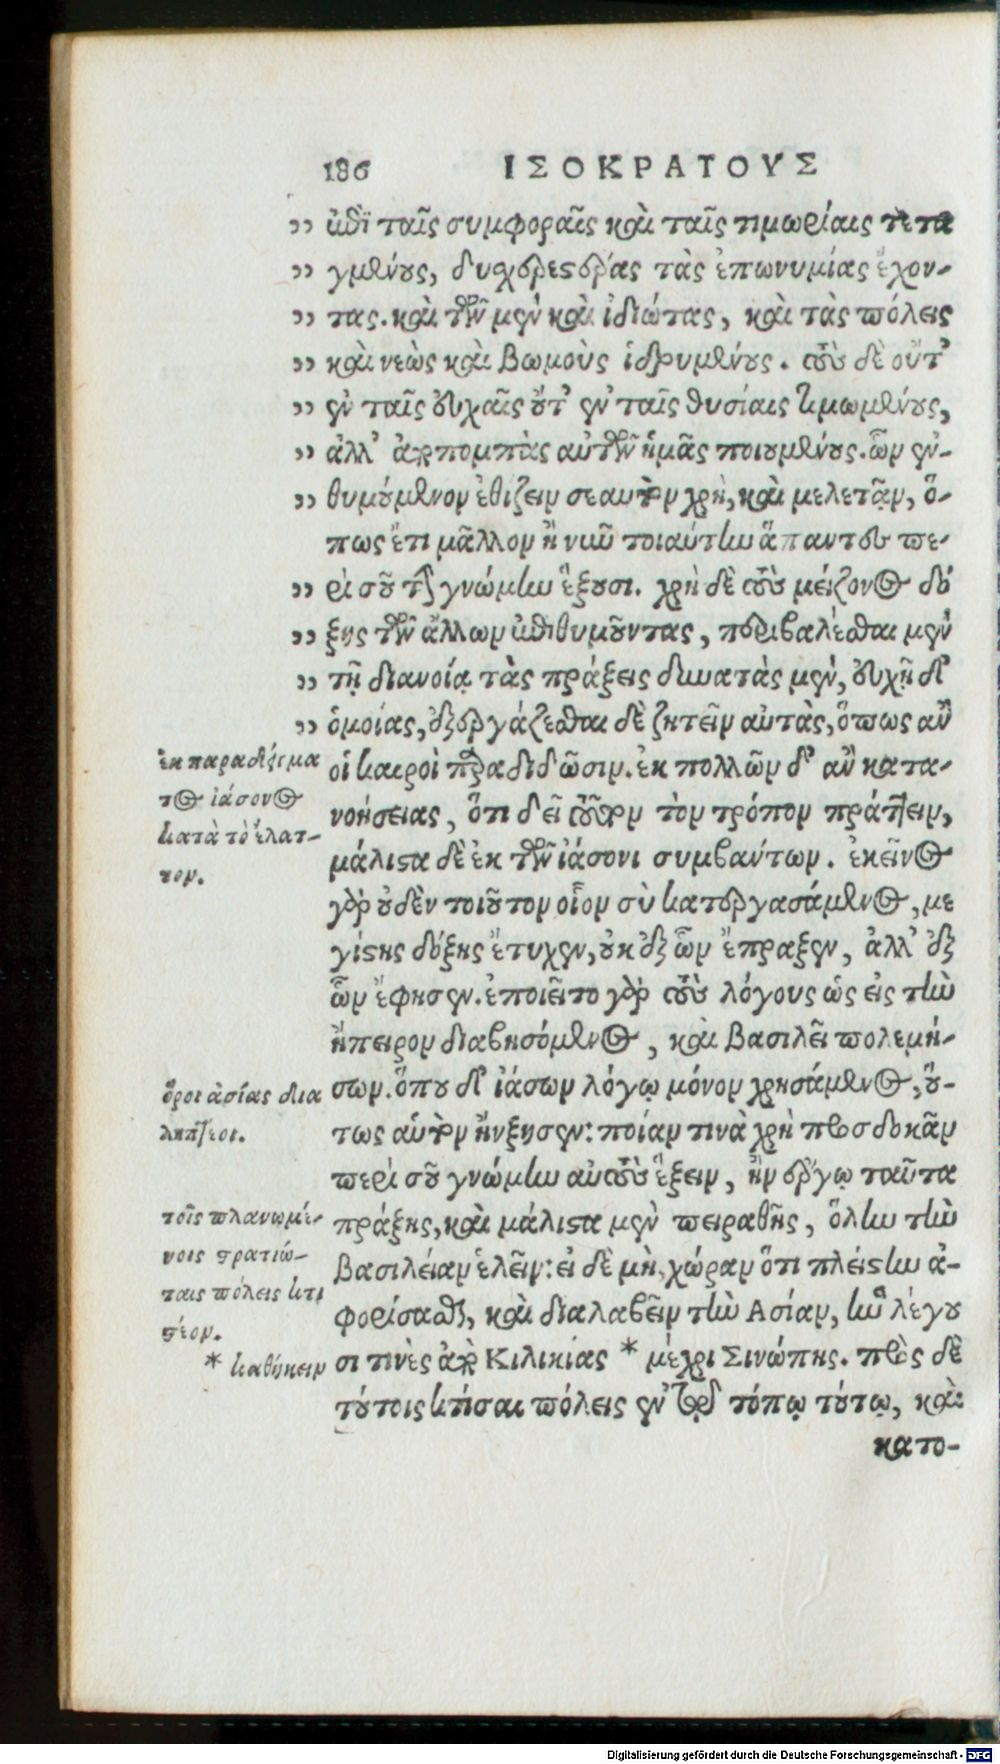 186 ΙΣΟΚΡΑΤΟΥΣ
,, ἐπὶ ταῖς συμφοραῖς καὶ ταῖς τιμωρίαις τετα
,, γμένους, δυσχερεστέρας τὰς ἐπωνυμίας ἔχον-
,, τας. καὶ τῶν μὲν καὶ ἰδιώτας, καὶ τὰς πόλεις
,, καὶ νεὼς καὶ βωμοὺς ἱδρυμένους. τοὺς δὲ οὔτ'
,, ἐν ταῖς εὐχαῖς οὔτ' ἐν ταῖς θυσίαις τιμωμένους,
,, ἀλλ' ἀποπομπὰς αὐτῶν ἡμᾶς ποιουμένους. ὧν ἐν-
,, θυμούμενον ἐθίζειν σεαυτὸν χρὴ, καὶ μελετᾷν, ὅ-
πως ἔτι μᾶλλον ἢ νῦν τοιαύτην ἅπαντες πε-
,, ρὶ σοῦ τὴν γνώμην ἕξουσι. χρὴ δὲ τοὺς μείζονος δό
,, ξης τῶν ἄλλων ἐπιθυμοῦντας, περιβαλέσθαι μὲν
,, τῇ διανοίᾳ τὰς πράξεις δυνατὰς μὲν, εὐχῇ δ'
,, ὁμοίας, ἐξεργάζεσθαι δὲ ζητεῖν αὐτὰς, ὅπως ἂν
οἱ καιροὶ παραδιδῶσιν. ἐκ πολλῶν δ' ἂν κατα-
νοήσειας, ὅτι δεῖ τοῦτον τὸν τρόπον πράττειν,
μάλιστα δὲ ἐκ τῶν ἰάσονι συμβάντων. ἐκεῖνος
γὰρ οὐδὲν τοιοῦτον οἷον σὺ κατεργασάμενος, με
γίστης δόξης ἔτυχεν, οὐκ ἐξ ὧν ἔπραξεν, ἀλλ' ἐξ
ὧν ἔφησεν. ἐποιεῖτο γὰρ τοὺς λόγους ὡς εἰς τὴν
ἤπειρον διαβησόμενος, καὶ βασιλεῖ πολεμή-
σων. ὅπου δ' ἰάσων λόγῳ μόνον χρησάμενος, οὕ-
τως αὑτὸν ηὔξησεν: ποίαν τινὰ χρὴ προσδοκᾶν
περὶ σοῦ γνώμην αὐτοὺς ἕξειν, ἢν ἔργῳ ταῦτα
πράξῃς, καὶ μάλιστα μὲν πειραθῇς, ὅλην τὴν
βασιλείαν ἑλεῖν: εἰ δὲ μὴ, χώραν ὅτι πλείστην ἀ-
φορίσασθαι, καὶ διαλαβεῖν τὴν Ἀσίαν, ἣν λέγου
σι τινὲς ἀπὸ Κιλικίας * μέχρι Σινώπης. πρὸς δὲ
τούτοις κτίσαι πόλεις ἐν τῷδε τόπῳ τούτῳ, καὶ
κατο-
ἐκ παραδείγμα
τος ἰάσονος
κατὰ τὸ ἔλατ-
τον.
ὅροι ἀσίας δια
ληπτέοι.
τοῖς πλανωμέ-
νοις στρατιώ-
ταις πόλεις κτι
στέον.
* καθήκειν
Digitalisierung gefördert durch die Deutsche Forschungsgemeinschaft - DFG